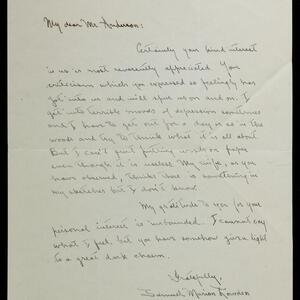 My dear Mr. Anderson:
Certainly your kind interest
in us is most reverently appreciated. Your
criticism which you expressed so feelingly has
got into us and will spur us on and on. I
get into terrible moods of depression sometimes
and I have to get out for a day or so in the
woods and try to think what it is all about.
But I can't quit putting words on paper
even though it is useless. My wife, as you
have observed, thinks there is something in
my sketches but I don't know.
My gratitude to you for your
personal interest is unbounded. I cannot say
what I feel, but you have somehow given light
to a great dark chasm.
Gratefully,
Samuel Marion